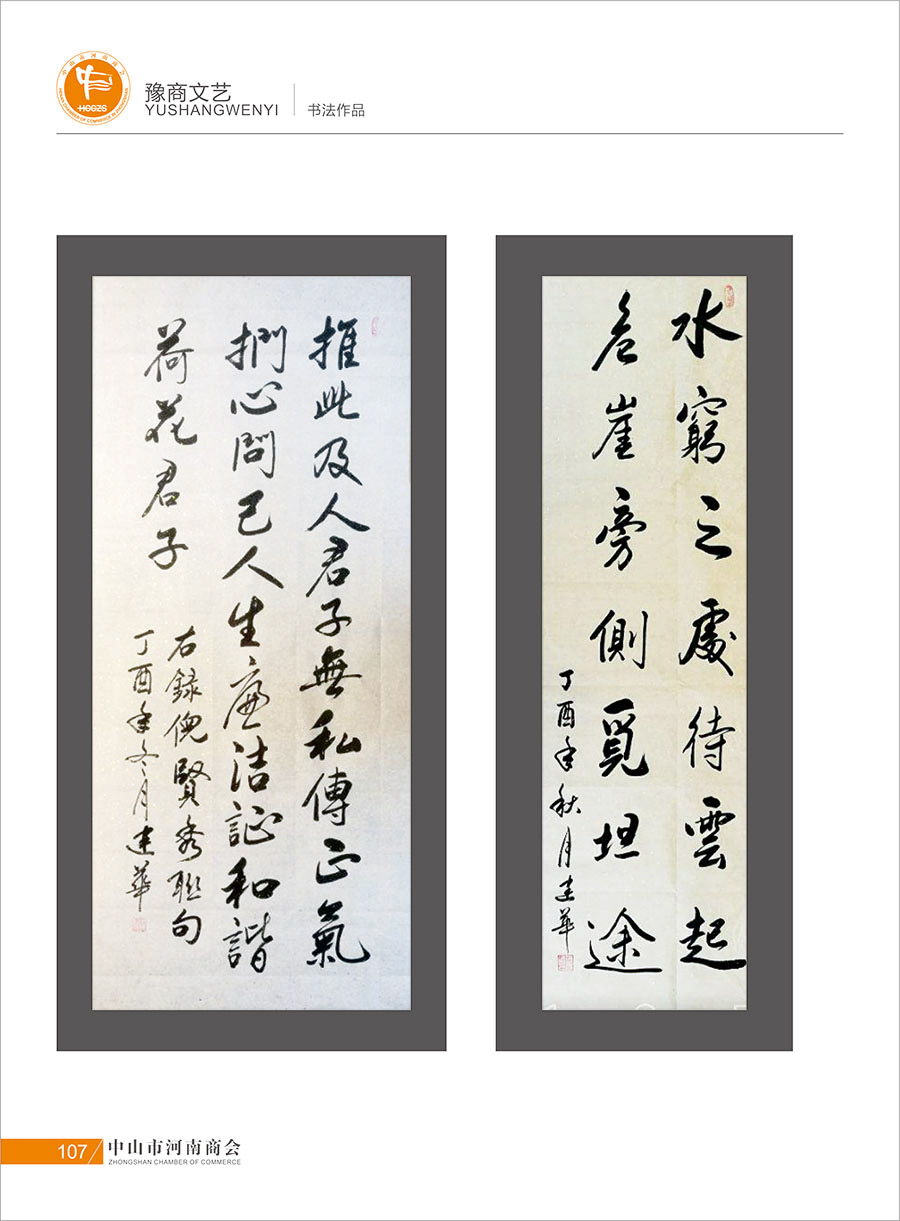 中山市河南商会
HCCZS
HENAN CHAMBER OF COMMERCE IN ZHONGSHAN
豫商文艺
YUSHANGWENYI
书法作品
推此及人君子無私傳正氣
捫心問己人生廉洁証和諧
荷花君子
右録倪賢秀聯句
丁酉年冬月建華
水窮之處待雲起
危崖旁側覓坦途
丁酉年秋月建華
107
中山市河南商会
ZHONGSHAN CHAMBER OF COMMERCE